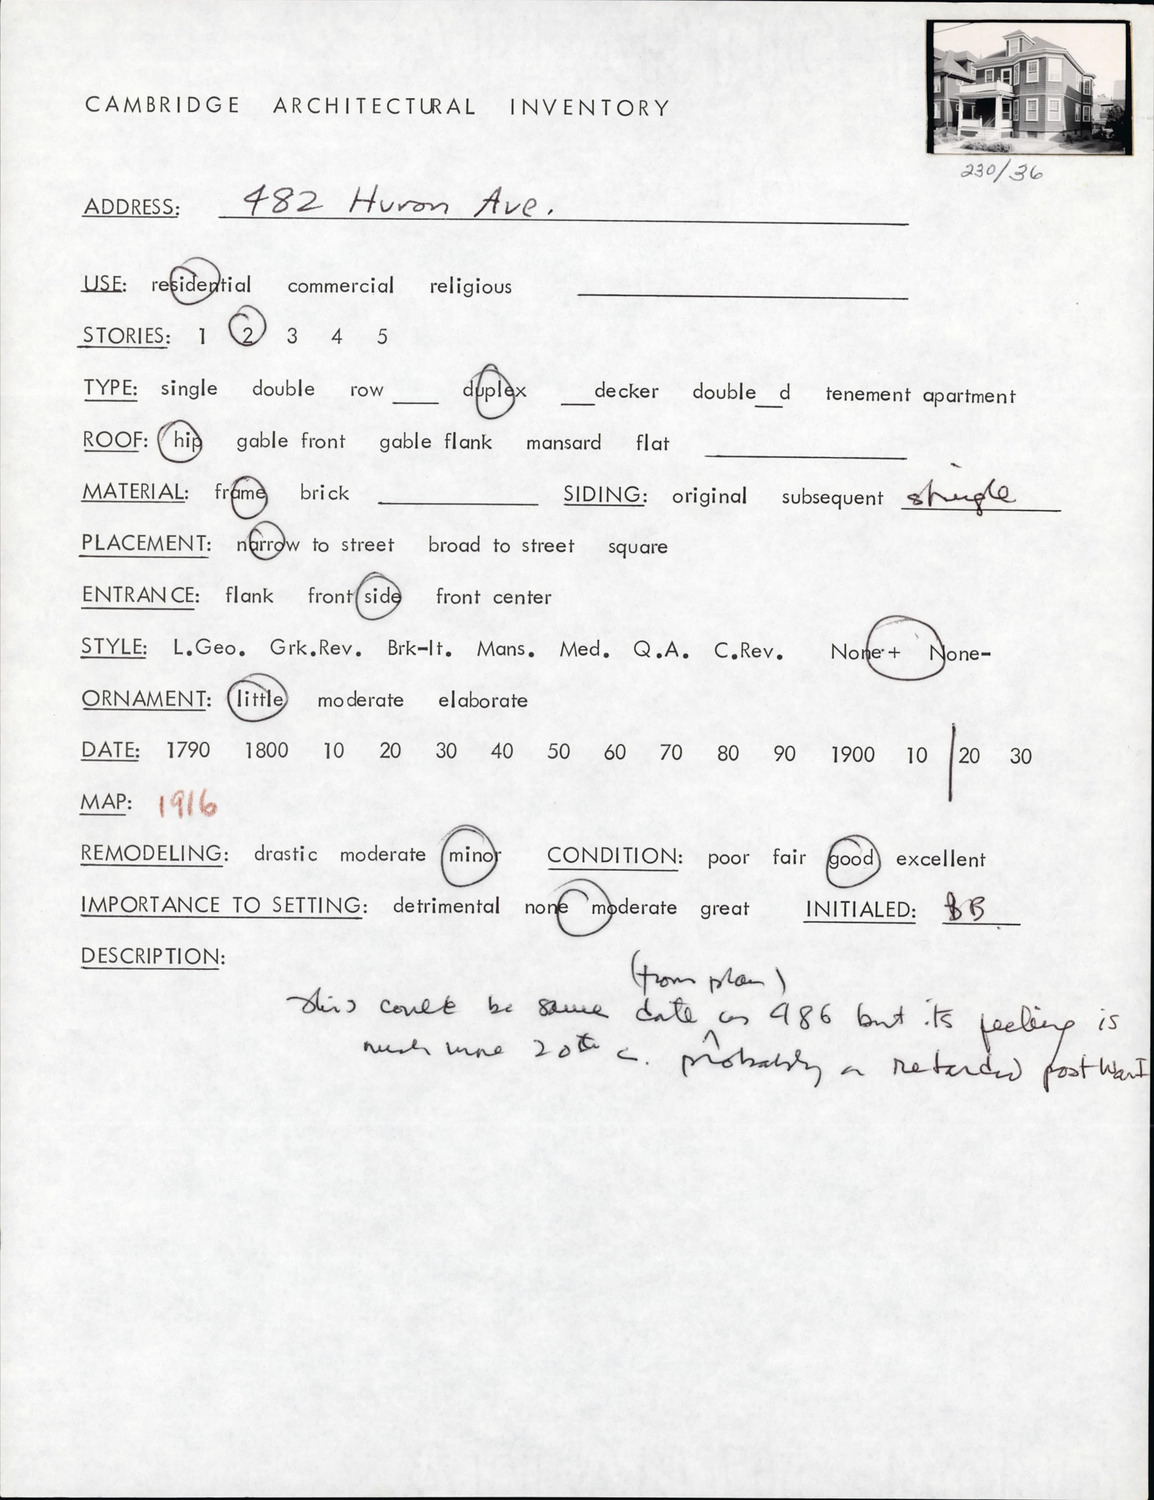 CAMBRIDGE ARCHITECTURAL INVENTORY
230/36
ADDRESS: 482 Huron Ave.
USE: residential commercial religious
STORIES: 1 2 3 4 5
TYPE: single double row ____ duplex ___decker double__d tenement apartment
ROOF: hip gable front gable flank mansard flat
MATERIAL: frame brick SIDING: original subsequent shingle
PLACEMENT: narrow to street broad to street square
ENTRANCE: flank front side front center
STYLE: L.Geo. Grk.Rev. Brk-It. Mans. Med. Q.A. C.Rev. None+ None-
ORNAMENT: little moderate elaborate
DATE: 1790 1800 10 20 30 40 50 60 70 80 90 1900 10 20 30
MAP: 1916
REMODELING: drastic moderate minor CONDITION: poor fair good excellent
IMPORTANCE TO SETTING: detrimental none moderate great INITIALED: BB
DESCRIPTION:
(from plan)
this could be same date as 486 but its feeling is
much more 20th c. probably a retarded post War I